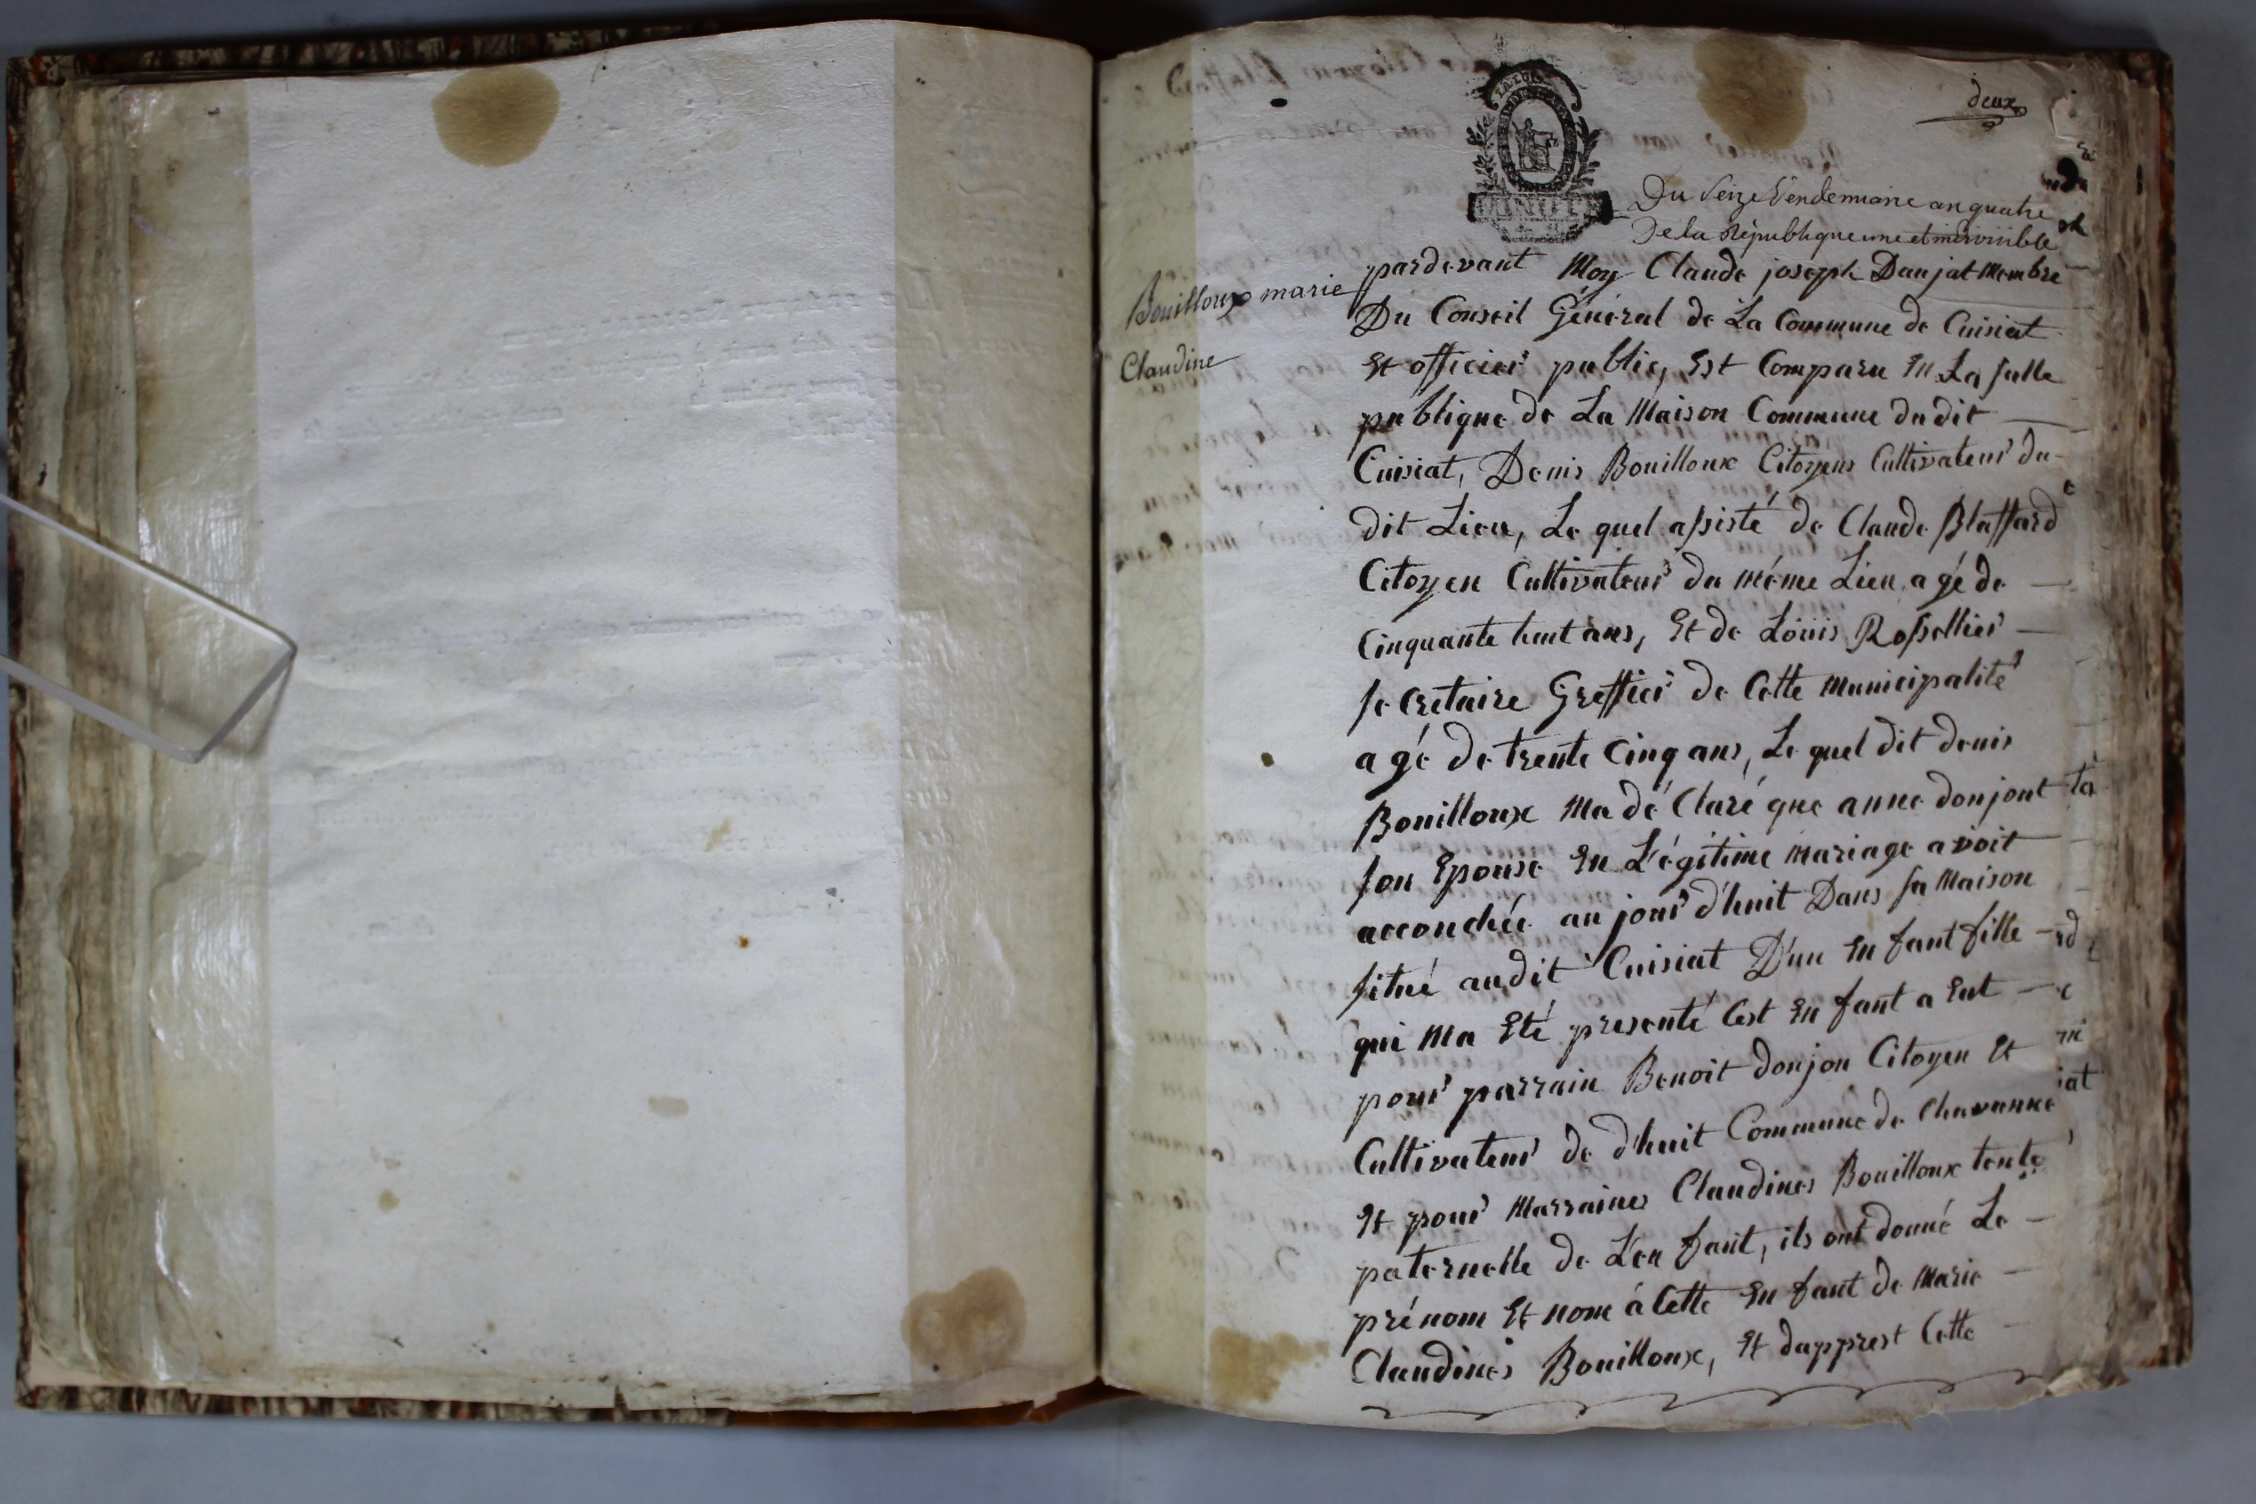 deux
Du Seize Vendemiaire an quatre
De la République une et indivisible
Bouilloux marie
Claudine
pardevant Moy Claude joseph Danjat Membre
Du Conseil Général de La Commune de Cuisiat
Et officier public, Est Comparu En La salle
publique de La Maison Commune du dit
Cuisiat, Denis Bouilloux Citoyens Cultivateur du-
dit Lieu, Le quel assisté de Claude Blaffard
Citoyen Cultivateur du même Lieu agé de
Cinquante huit ans, Et de Loüis Rossellier
secretaire Greffier de Cette Municipalité
agé de trente Cinq ans, Le quel dit denis
Bouilloux Ma dé Claré que anne donjont
son Epouse En Légitime Mariage avoit
accouchée au jour d'huit Dans sa Maison
situé audit Cuisiat D'un En fant fille
qui Ma Eté presenté Cest En fant a Eut
pour parrain Benoit donjon Citoyen Et
Cultivateur de d'huit Commune de Chavanne
Et pour Marraines Claudines Bouilloux tente
paternelle de L'en fant, ils ont donné Le
prénom Et nom à Cette En fant de Marie
Claudines Bouilloux, Et dapprest Cette